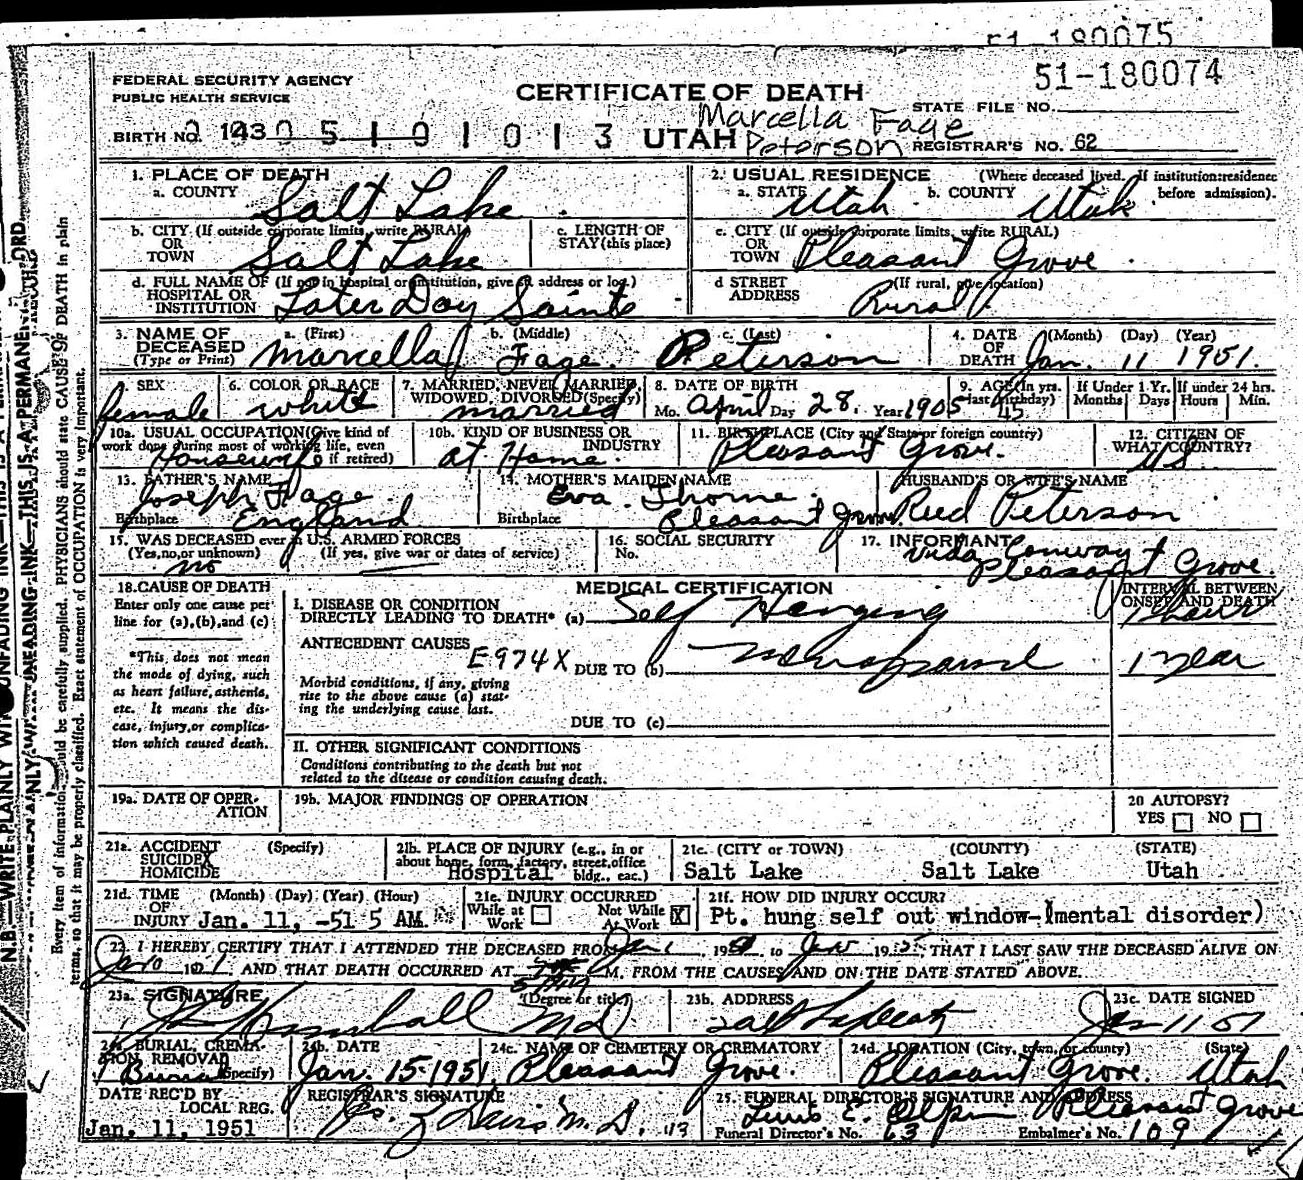 51-180075
51-180074
FEDERAL SECURITY AGENCY
PUBLIC HEALTH SERVICE
CERTIFICATE OF DEATH
STATE FILE NO.
Marcella Fage
Peterson
BIRTH NO. 143 0 5 1 0 1 0 1 3 UTAH
REGISTRAR'S NO. 62
1. PLACE OF DEATH
a. COUNTY Salt Lake
2. USUAL RESIDENCE (Where deceased lived. If institution: residence before admission).
a. STATE Utah b. COUNTY Utah
b. CITY (If outside corporate limits, write RURAL) OR TOWN Salt Lake
c. LENGTH OF STAY (this place)
c. CITY (If outside corporate limits, write RURAL) OR TOWN Pleasant Grove
d. FULL NAME OF (If not in hospital or institution, give st. address or loc.) HOSPITAL OR INSTITUTION Later Day Saints
d STREET ADDRESS (If rural, give location) Rural
3. NAME OF DECEASED (Type or Print) a. (First) Marcella b. (Middle) Fage c. (Last) Peterson
4. DATE OF DEATH (Month) (Day) (Year) Jan. 11 1951.
SEX female
6. COLOR OR RACE white
7. MARRIED, NEVER MARRIED, WIDOWED, DIVORCED (Specify) married
8. DATE OF BIRTH Mo. April Day 28. Year 1905
9. AGE (In yrs. last birthday) 45
If Under 1 Yr. Months Days
If under 24 hrs. Hours Min.
10a. USUAL OCCUPATION (Give kind of work done during most of working life, even if retired) Housewife
10b. KIND OF BUSINESS OR INDUSTRY at Home.
11. BIRTHPLACE (City and State or foreign country) Pleasant Grove.
12. CITIZEN OF WHAT COUNTRY? US
13. FATHER'S NAME Joseph Fage
Birthplace England
14. MOTHER'S MAIDEN NAME Eva Thorne.
Birthplace Pleasant Grove
HUSBAND'S OR WIFE'S NAME
Reed Peterson
15. WAS DECEASED ever in U.S. ARMED FORCES
(Yes, no, or unknown) (If yes, give war or dates of service)
no
16. SOCIAL SECURITY No.
17. INFORMANT Vida Conway
Pleasant Grove.
18. CAUSE OF DEATH
Enter only one cause per line for (a), (b), and (c)
*This does not mean the mode of dying, such as heart failure, asthenia, etc. It means the disease, injury, or complication which caused death.
MEDICAL CERTIFICATION
INTERVAL BETWEEN ONSET AND DEATH
I. DISEASE OR CONDITION DIRECTLY LEADING TO DEATH* (a) Self Hanging
ANTECEDENT CAUSES E974X DUE TO (b) 1 year
Morbid conditions, if any, giving rise to the above cause (a) stating the underlying cause last.
DUE TO (c)
II. OTHER SIGNIFICANT CONDITIONS
Conditions contributing to the death but not related to the disease or condition causing death.
19a. DATE OF OPERATION
19b. MAJOR FINDINGS OF OPERATION
20 AUTOPSY?
YES NO
21a. ACCIDENT (Specify)
SUICIDE X
HOMICIDE
21b. PLACE OF INJURY (e.g., in or about home, form, factory, street, office bldg., eac.) Hospital
21c. (CITY or TOWN) (COUNTY) (STATE)
Salt Lake Salt Lake Utah
21d. TIME OF INJURY (Month) (Day) (Year) (Hour) Jan. 11, -51 5 AM.
21e. INJURY OCCURRED
While at Work Not While At Work X
21f. HOW DID INJURY OCCUR?
Pt. hung self out window-(mental disorder)
22. I HEREBY CERTIFY THAT I ATTENDED THE DECEASED FROM Jan 1, 19 to Jan 1951, THAT I LAST SAW THE DECEASED ALIVE ON
Jan 10 AND THAT DEATH OCCURRED AT M. FROM THE CAUSES AND ON THE DATE STATED ABOVE.
23a. SIGNATURE (Degree or title)
Kimball MD
23b. ADDRESS
Salt Lake City
23c. DATE SIGNED
Jan 11 51
24a. BURIAL, CREMATION, REMOVAL (Specify) Burial
24b. DATE Jan. 15-1951
24c. NAME OF CEMETERY OR CREMATORY Pleasant Grove.
24d. LOCATION (City, town, or county) (State) Pleasant Grove. Utah
DATE REC'D BY LOCAL REG.
Jan. 11, 1951
REGISTRAR'S SIGNATURE
25. FUNERAL DIRECTOR'S SIGNATURE AND ADDRESS
Pleasant Grove
Funeral Director's No. 63 Embalmer's No. 109
N.B.—WRITE PLAINLY WITH UNFADING INK—THIS IS A PERMANENT RECORD
Every item of information should be carefully supplied. PHYSICIANS should state CAUSE OF DEATH in plain
terms, so that it may be properly classified. Exact statement of OCCUPATION is very important.